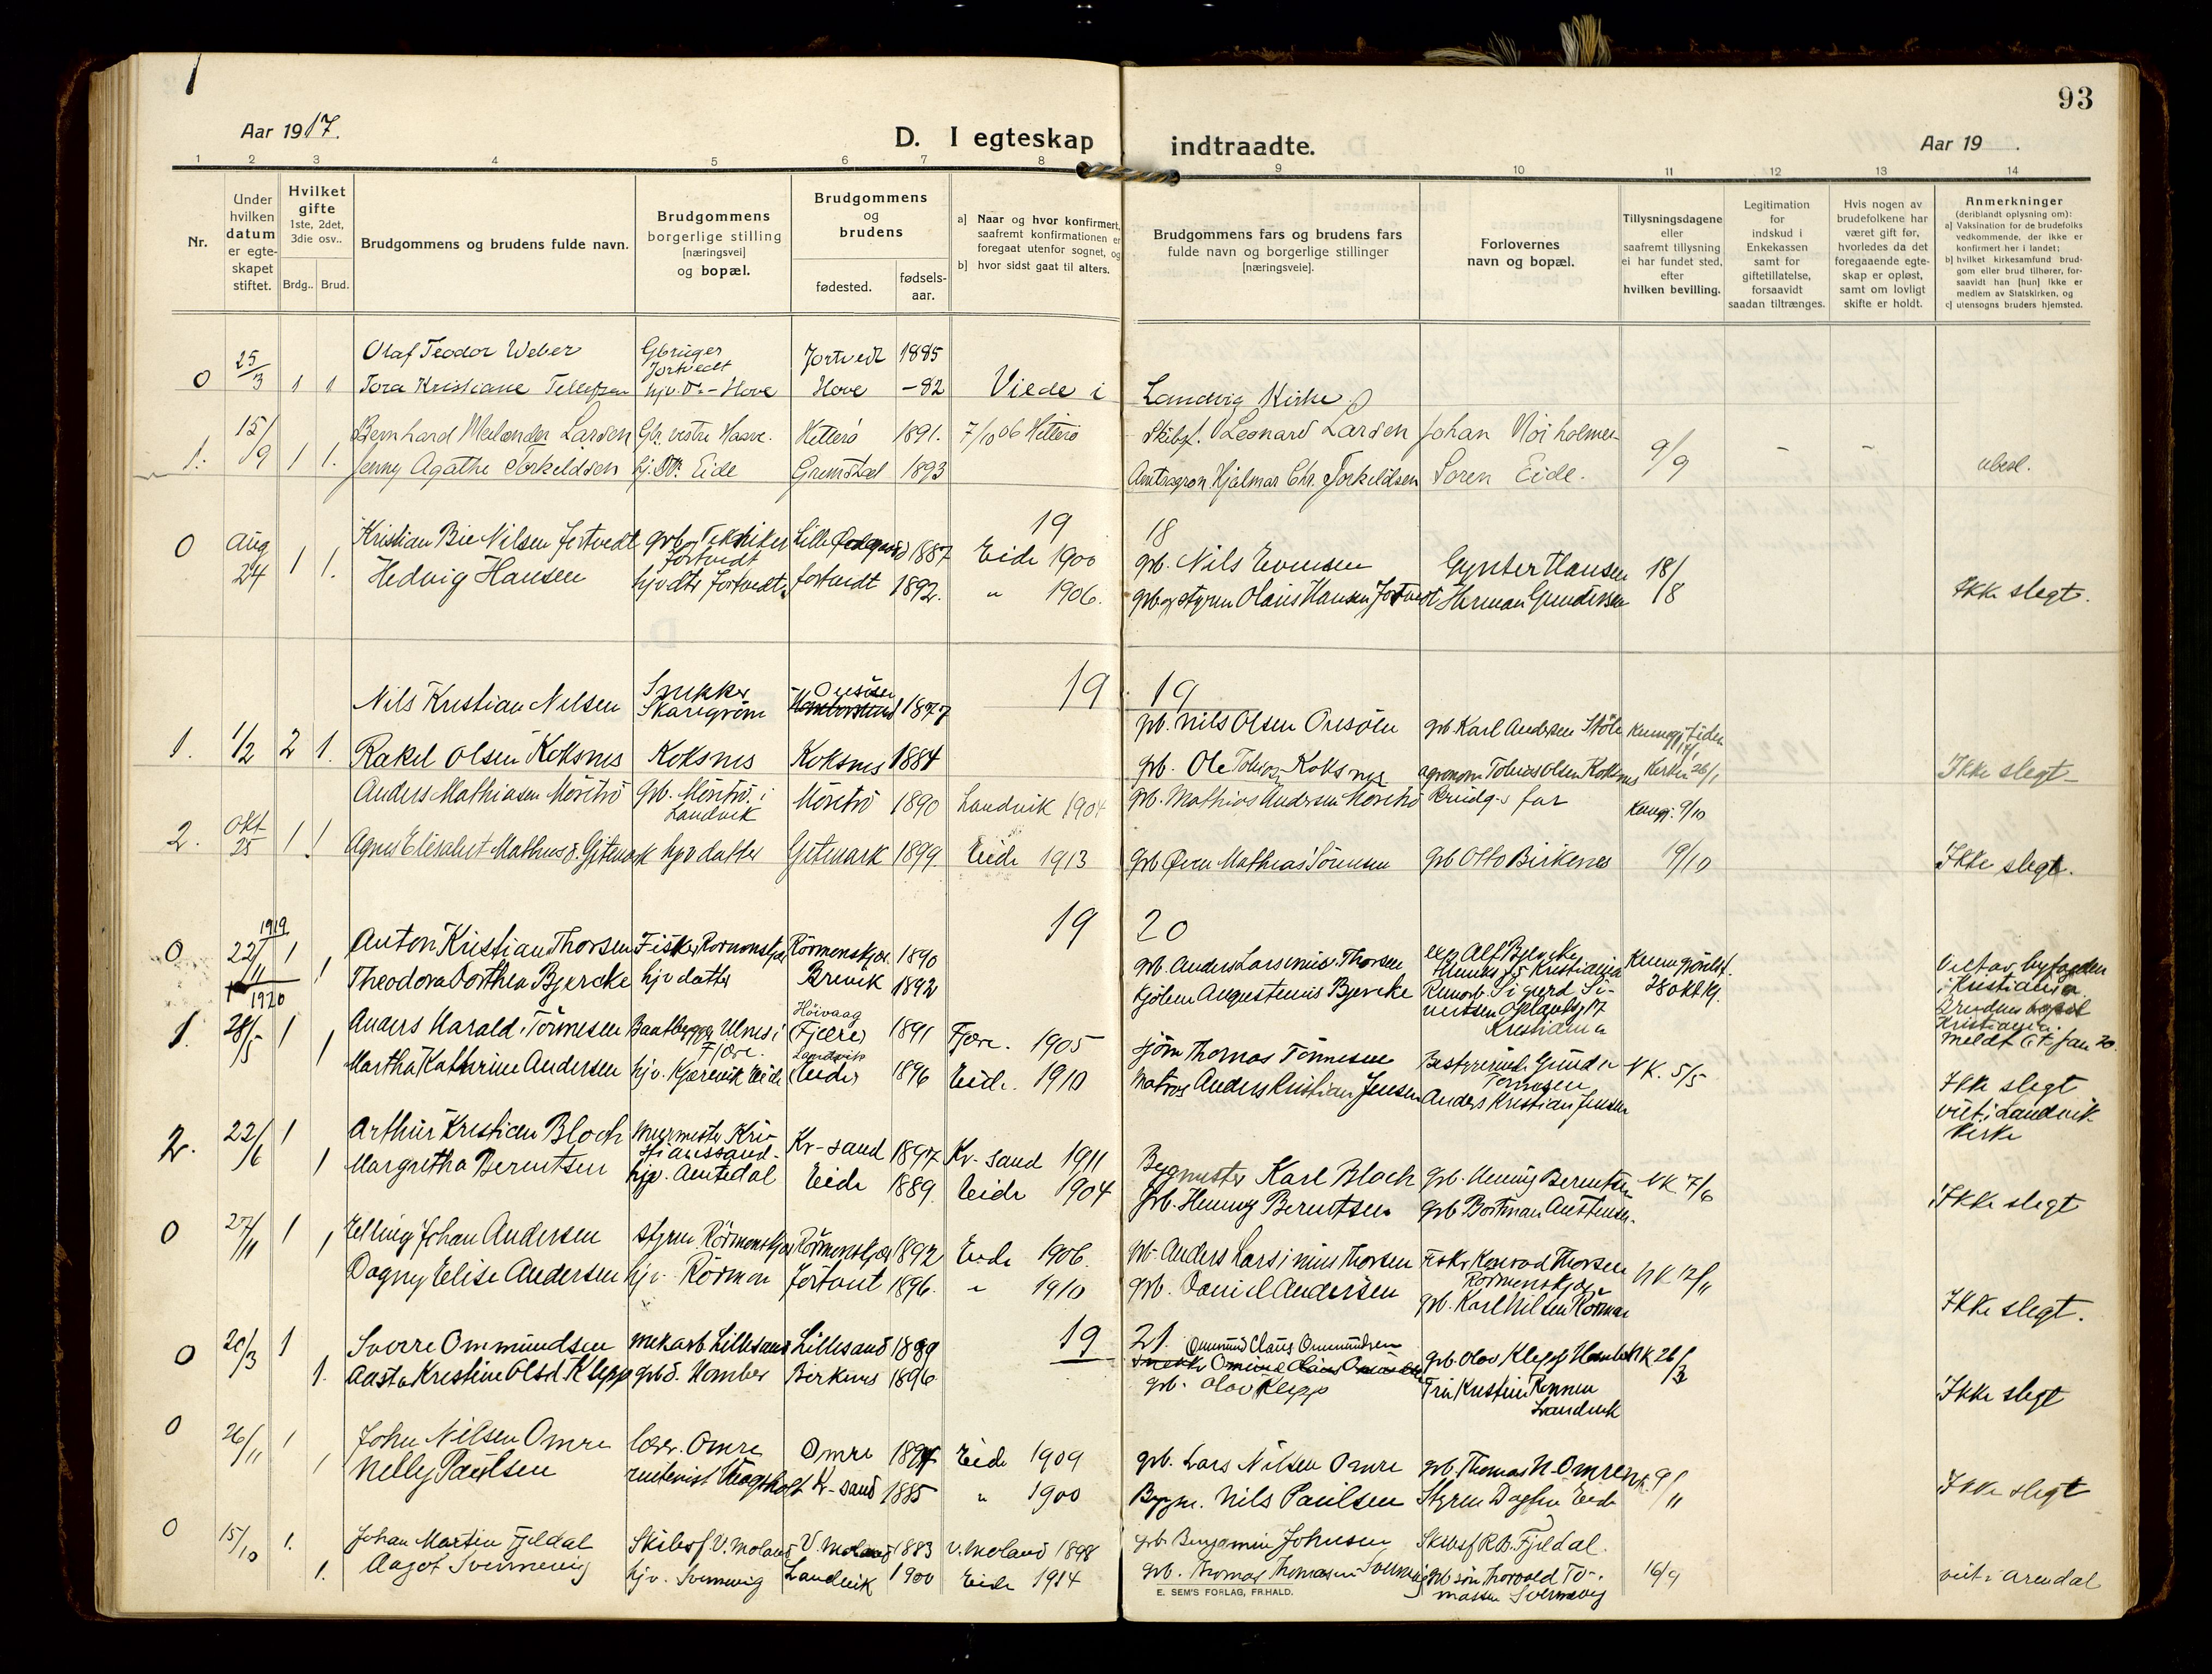 93
Aar 1917.
D. I egteskap indtraadte.
Aar 19 .
1 2 3 4 5 6 7 8 9 10 11 12 13 14
Nr.
Under hvilken datum er egte-skapet stiftet.
Hvilket gifte 1ste, 2det, 3die osv..
Brdg.. Brud.
Brudgommens og brudens fulde navn.
Brudgommens borgerlige stilling [næringsvei] og bopæl.
Brudgommens og brudens
fødested.
fødsels-aar.
a] Naar og hvor konfirmert, saafremt konfirmationen er foregaat utenfor sognet, og
b] hvor sidst gaat til alters.
Brudgommens fars og brudens fars fulde navn og borgerlige stillinger [næringsveie].
Forlovernes navn og bopæl.
Tillysningsdagene eller saafremt tillysning ei har fundet sted, efter hvilken bevilling.
Legitimation for indskud i Enkekassen samt for giftetillatelse, forsaavidt saadan tiltrænges.
Hvis nogen av brudefolkene har været gift før, hvorledes da det foregaaende egte-skap er opløst, samt om lovligt skifte er holdt.
Anmerkninger (deriblandt oplysning om):
a] Vaksination for de brudefolks vedkommende, der ikke er konfirmert her i landet;
b] hvilket kirkesamfund brud-gom eller brud tilhører, for-saavidt han [hun] ikke er medlem av Statskirken, og
c] utensogns bruders hjemsted.
Olaf Teodor Weber Gbruger Jortvedt Jortvedt 1885
0 25/3 1 1 Tora Kristiane Tellefsen hjv. Dr. - Hove Hove -82 Viede i Landvig Kirke
Bernhard Meilænder Larsen Gbr. vestre Haave. Hitterö 1891. 7/10 06 Hitterö Skibsf. Leonard Larsen Johan Norholmen
1. 15/9 1 1. Jenny Agathe Torkildsen hj. Dtr. Eide Grimstad 1893 Amtsagron. Hjalmar Chr. Torkildsen Soren Eide. 9/9 - - ubesl.
19 18
0 Aug 24 1 1. Kristian Bie Nilsen Jortvedt grb og Tekniker Jortvedt Lille 1887 Eide 1900 grb. Nils Evensen Gynter Hansen 18/8
Hedvig Hansen hjv dtr Jortvedt Jortvedt 1892. " 1906. grb og styrm Olaus Hansen Jortvedt Herman Gundersen Ikke slegt.
19 19
Nils Kristian Nilsen Snekker Skaregrøm 1877 grb. Nils Olsen Oresöln grb Karl Andersen Stöle
1. 1/2 2 1. Rakel Olsen Koksnes Koksnes Koksnes 1884 grb. Ole Tobias Koksnes agronom Tobias Olsen Koksnes 26/1 Ikke slegt
Anders Mathiasen Möretrö Grb. Möretrö i Landvik Möretrö 1890 Landvik 1904 grb. Mathias Andersen Möretrö Brudg-s far 9/10
2. Okt 25 1 1 Agnes Elisabet Mathiasd. Gitmark hjv datter Gitmark 1899 Eide 1913 grb Øven Mathias Sörensen grb Otto Birkenes 19/10 Ikke slegt.
19 20
1919
0 22/11 1 Anton Kristian Thorsen Fisker Rormonskjær Rörmenskjær 1890 grb. Anders Larsinius Thorsen Alf Bjercke Kristiania
1 Theodora Dorthea Bjercke hjv datter Brevik 1892 Kjölem Augustinus Bjercke Sigurd Si- Kristiania 28 okt 19.
Viet av byfogden i Kristiania
Brudens bopæl Kristiania.
meldt hit jan 20.
1920
1. 28/5 1 Anders Harald Tönnesen Baatbygger Ulnes i Fjære. Höivaag (Fjære) 1891 Fjære. 1905 sjöm Thomas Tönnesen Tönnesen NK. 5/5
1 Martha Kathrine Andersen hjv. Kjærevik Eide Landvik (Eide) 1896 Eide. 1910 Matros Anders Kristian Jensen Anders Kristian Jensen
Ikke slegt viet i Landvik kirke
2. 22/6 1 Arthur Kristian Bloch Murmester Kristianssand. Kr-sand 1897 Kr-sand 1911 Bygmester Karl Bloch grb. Henny Berentsen NK 7/6
1 Margretha Berentsen hjv. Amtedal Eide 1889. Eide 1904 grb. Henny Berentsen grb Bortman Austensen. Ikke slegt
0 27/11 1 Elling Johan Andersen styrm. Rörmenskjær Rörmenskjær 1892 Eide 1906. grb. Anders Larsinius Thorsen Fisker Konrad Thorsen Rörmenskjær NK 12/11
1 Dagny Elise Andersen hjv. Rörmen Jortveit 1896. " 1910 grb. Daniel Andersen grb. Karl Nilsen Rörmen Ikke slegt.
19 21.
0 20/3 1 Sverre Ommundsen mek arb Lillesand Lillesand 1889 Ommund Claus Ommundsen grb. Olov Klepp Homber NK 26/3
1. Aasta Kristine Olsd Klepp grb d. Homber Birkenes 1896 grb. Olov Klepp Trin Kristine Rönnen Landvik Ikke slegt
0 26/11 1 John Nilsen Omre lærer. Omre Omre 1894 Eide 1909 grb. Lars Nilsen Omre grb. Thomas N. Omre NK. 9/11
1 Nelly Paulsen Kr-sand 1885 " 1900 Bygm. Nils Paulsen Styrm Eide Ikke slegt
0 15/10 1. Johan Martin Fjeldal Skibsf V. Moland V. Moland 1883 V. Moland 1898 grb Benjamin Johnsen Skibsf R.B. Fjeldal.
1. Aagot Svennevig hjv. Svennevig Landvik 1900 Eide 1914 grb. Thomas Thomassen Svennevig grb sön Thorvald Tomassen Svennevig 16/9 viet i Arendal
E. SEM'S FORLAG, FR.HALD.